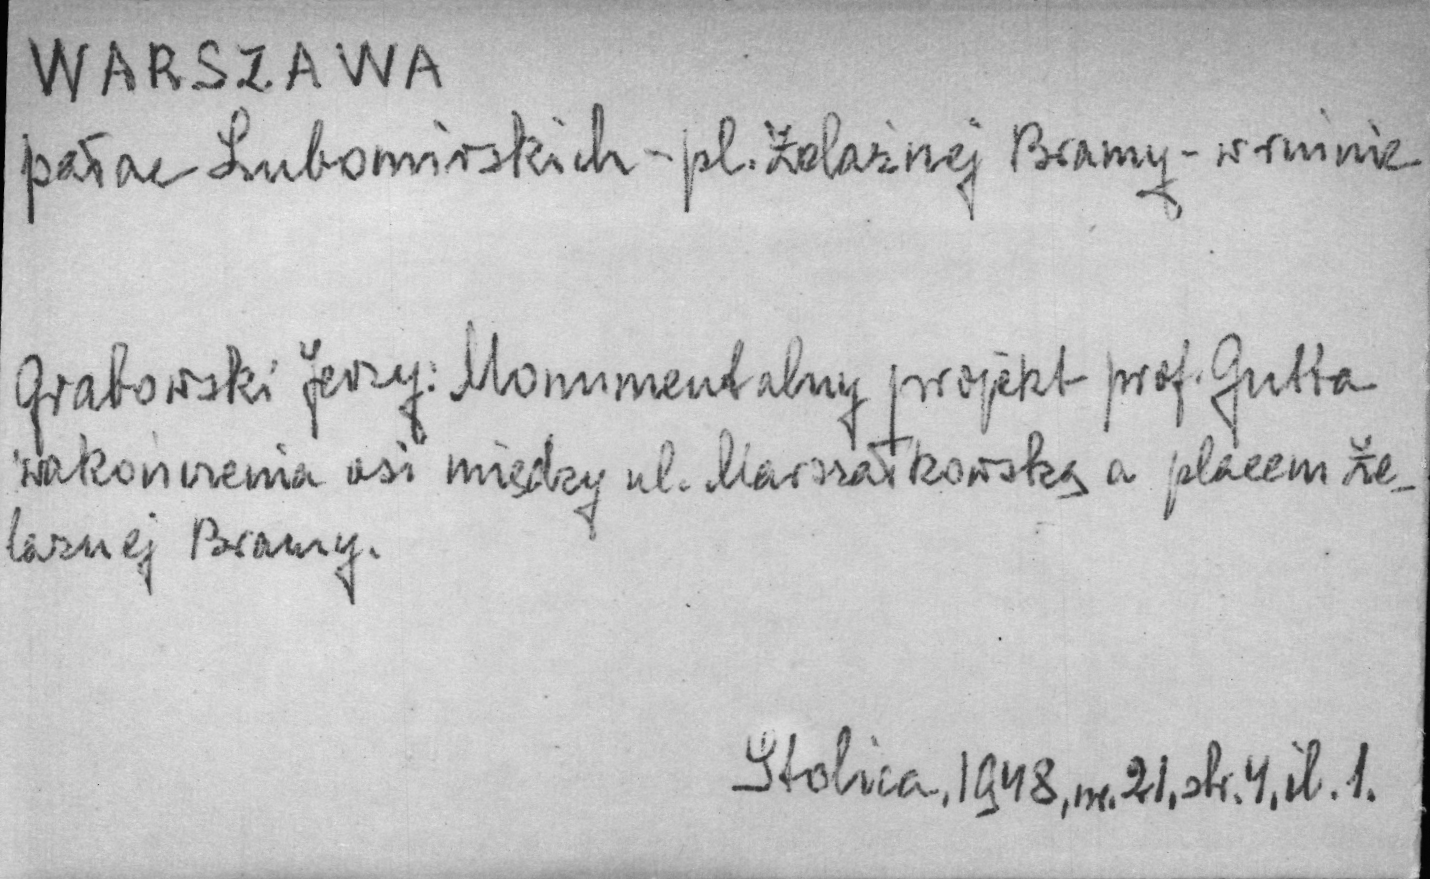 WARSZAWA
pałac Lubomirskich - pl. Żelaznej Bramy - w ruinie
Grabowski Jerzy: Monumentalny projekt prof. Gutta
zakończenia osi między ul. Marszałkowską a placem Że-
laznej Bramy.
Stolica, 1948, nr. 21, str. 4, il. 1.